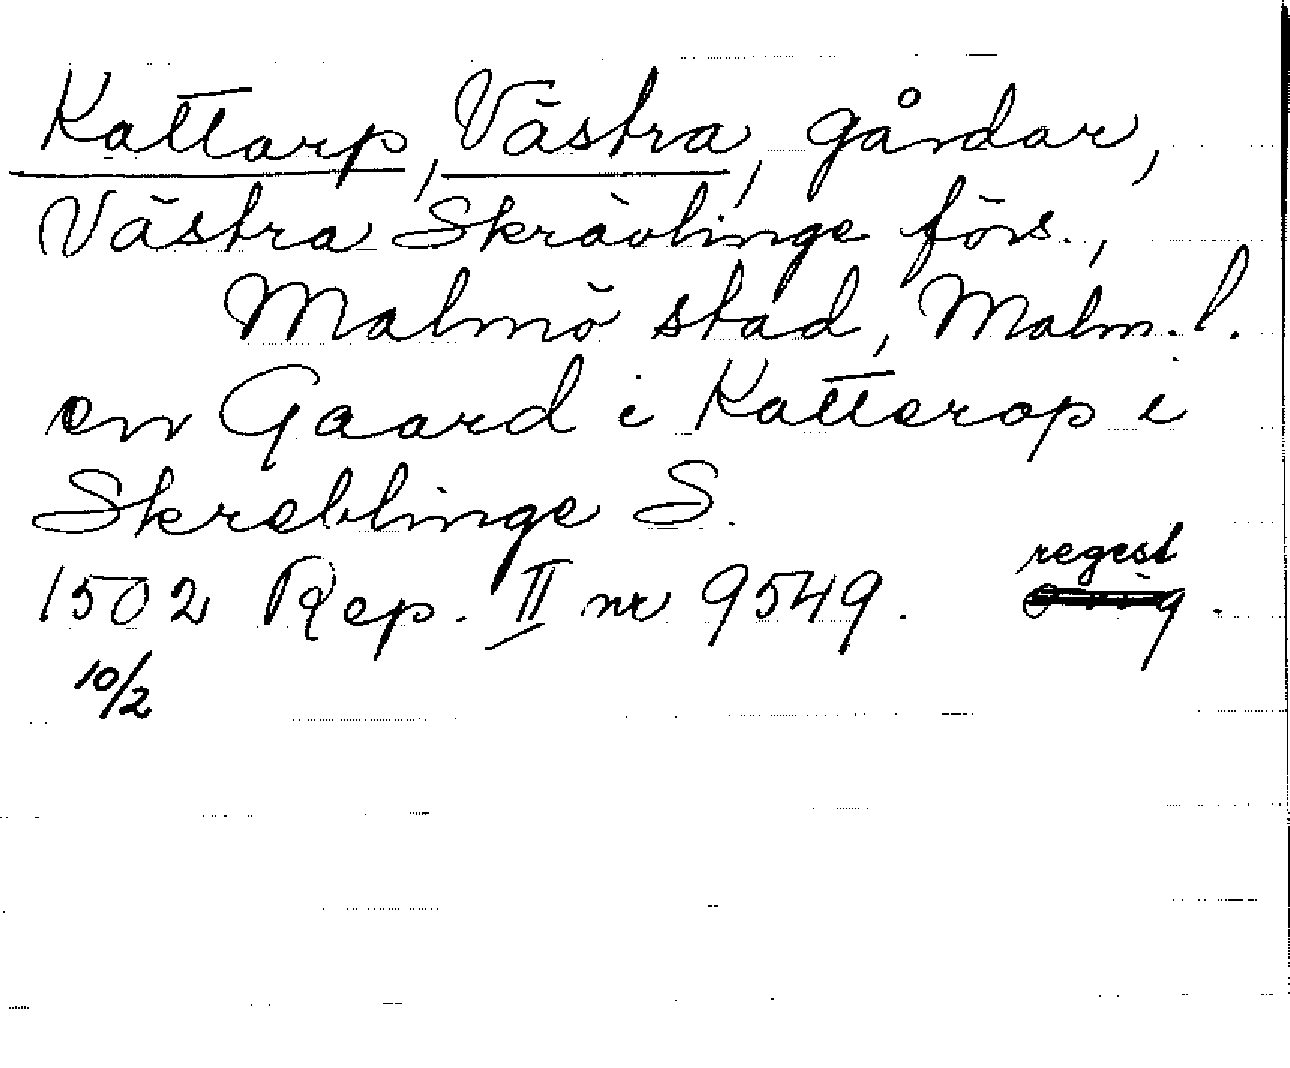 Kattarp, Västra, gårdar,
Västra Skrävlinge förs.,
Malmö stad, Malm. l.
en Gaard i Katterop i
Skreblinge S.
regest
1502 Rep. II nr 9549.
10/2